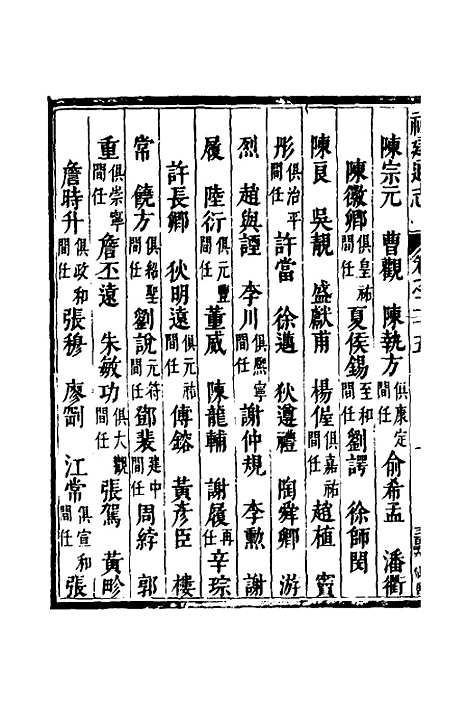 陳宗元　曹觀　陳執方俱康定間任　俞希孟　潘衢
陳徽卿俱皇祐間任　夏侯錫至和間任　劉諤　徐師閔
陳良　吳靚　盛獻甫　楊偓俱嘉祐間任　趙植　竇
彤俱治平間任　許當　徐邁　狄遵禮　陶舜卿　游
烈　趙與諲　李川俱熙寧間任　謝仲規　李勲　謝
履　陸衍俱元豐間任　董威　陳龍輔　謝履再任　辛琮
許長卿　狄明遠俱元祐間任　傅鎔　黃彥臣　樓
常　饒方俱紹聖間任　劉說元符間任　鄧裴建中間任　周綍　郭
重俱崇寧間任　詹丕遠　朱敏功俱大觀間任　張駕　黃畛
詹時升俱政和間任　張穆　廖剛　江常俱宣和間任　張